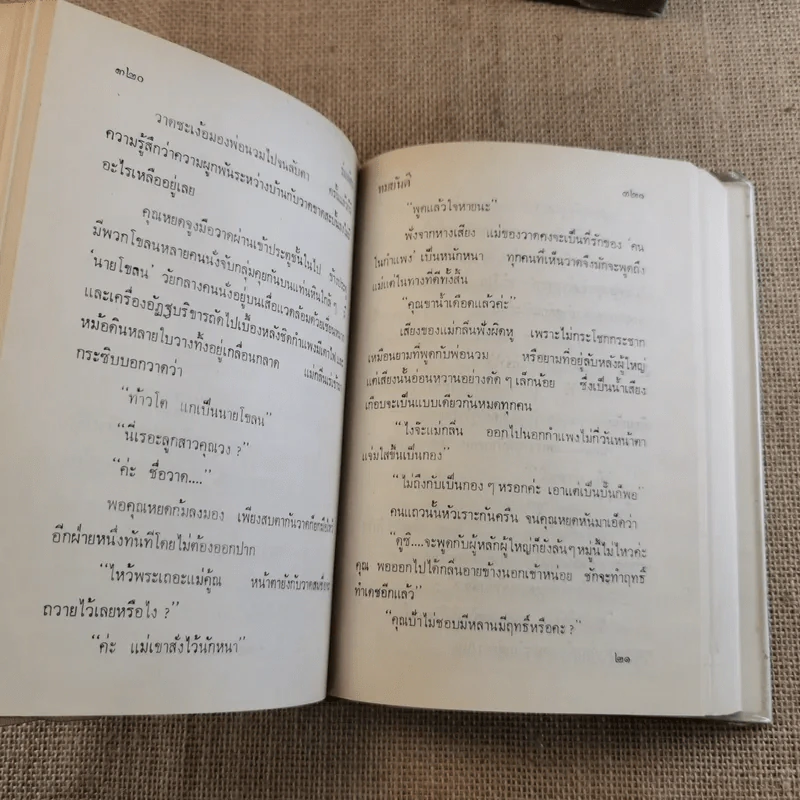 ๓๒๐
วาดชะเง้อมองพ่อนวมไปจนลับตา
ความรู้สึกว่าความผูกพันระหว่างบ้านกับวาดขาดสะบั้นลง
อะไรเหลืออยู่เลย
คุณหยดจูงมือวาดผ่านเข้าประตูชั้นในไป
มีพวกโขลนหลายคนนั่งจับกลุ่มคุยกันบนแท่นหินใกล้ ๆ
‘นายโขลน’ วัยกลางคนนั่งอยู่บนเสื่อแวดล้อมด้วยเชี่ยนหมาก
และเครื่องอัฏฐบริขารถัดไปเบื้องหลังชิดกำแพงมีเตาไฟและ
หม้อดินหลายใบวางทิ้งอยู่เกลื่อนกลาด แม่กลิ่น
กระซิบบอกวาดว่า
“ท้าวโต แกเป็นนายโขลน”
“นี่เรอะลูกสาวคุณวง ?
“ค่ะ ชื่อวาด....”
พอคุณหยดก้มลงมอง เพียงสบตากันวาดก็ยกมือไหว้
อีกฝ่ายหนึ่งทันทีโดยไม่ต้องออกปาก
“ไหว้พระเถอะแม่คู้ณ หน้าตายังกับวาด
ถวายไว้เลยหรือไง ?”
“ค่ะ แม่เขาสั่งไว้นักหนา”
ทมยันตี
๓๒๑
“พูดแล้วใจหายนะ”
ฟังจากหางเสียง แม่ของวาดคงจะเป็นที่รักของ ‘คน
ในกำแพง’ เป็นหนักหนา ทุกคนที่เห็นวาดจึงมักจะพูดถึง
แม่แต่ในทางที่ดีทั้งสิ้น
“คุณขาน้ำเดือดแล้วค่ะ”
เสียงของแม่กลิ่นฟังผิดหู เพราะไม่กระโชกกระชาก
เหมือนยามที่พูดกับพ่อนวม หรือยามที่อยู่ลับหลังผู้ใหญ่
แต่เสียงนั้นอ่อนหวานอย่างดัด ๆ เล็กน้อย ซึ่งเป็นน้ำเสียง
เกือบจะเป็นแบบเดียวกันหมดทุกคน
“ไงจ๊ะแม่กลิ่น ออกไปนอกกำแพงไม่กี่วันหน้าตา
แจ่มใสขึ้นเป็นกอง”
“ไม่ถึงกับเป็นกอง ๆ หรอกค่ะ เอาแต่เป็นปั้นก็พอ”
คนแถวนั้นหัวเราะกันครืน จนคุณหยดหันมาเอ็ดว่า
“ดูซิ....จะพูดกับผู้หลักผู้ใหญ่ก็ยังล้น ๆ หมู่นี้ไม่ไหวค่ะ
คุณ พอออกไปได้กลิ่นอายข้างนอกเข้าหน่อย ชักจะทำฤทธิ์
ทำเดชอีกแล้ว”
“คุณป้าไม่ชอบมีหลานมีฤทธิ์หรือคะ ?”
๒๑